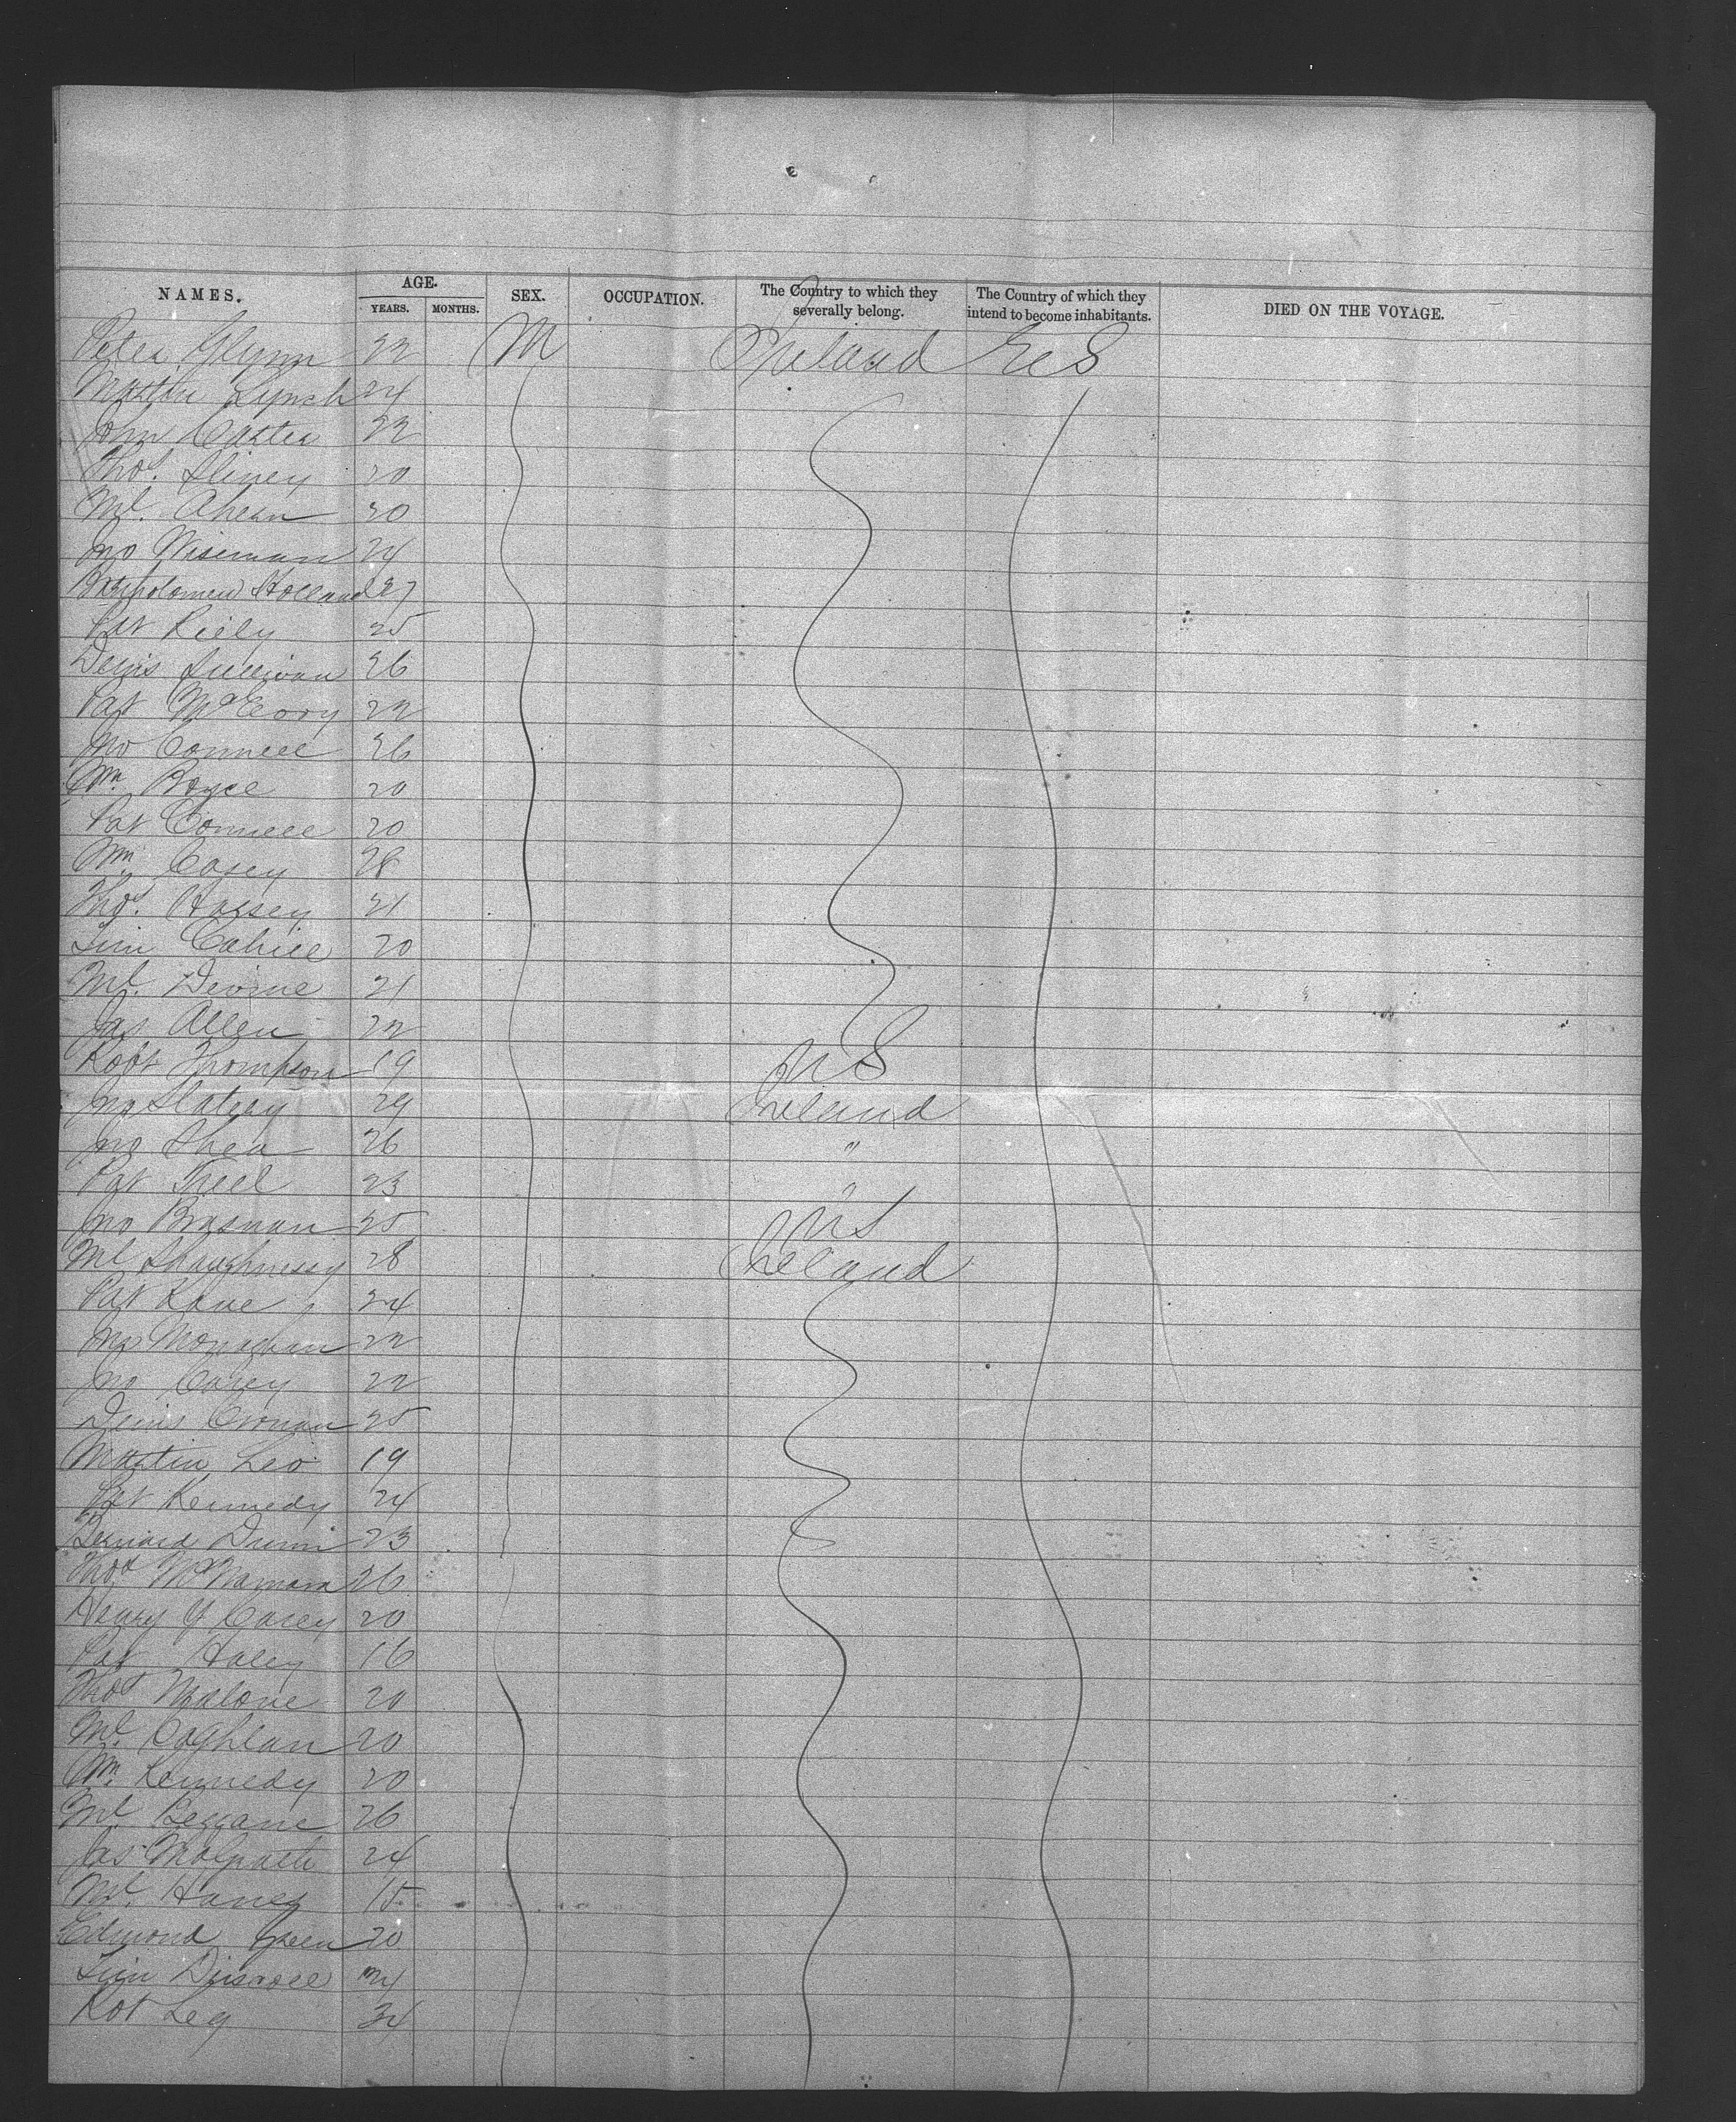 NAMES. AGE. SEX. OCCUPATION. The Country to which they severally belong. The Country of which they intend to become inhabitants. DIED ON THE VOYAGE.
YEARS. MONTHS.
Peter Glynn 22 M Ireland U S
Martin Lynch 24
John Carter 22
Thos. Sliney 20
Ml. Ahern 20
Jno Wiseman 24
Bartholomew Holland 27
Pat Riely 25
Denis Sullivan 26
Pat McEvoy 22
Jno Connell 26
Wm. Boyce 20
Pat Connell 20
Wm. Casey 28
Thos. Hassey 21
Tim Cahill 20
Ml. Devine 21
Jas Allen 22
Robt Thompson 19 U S
Jno Slatery 29 Ireland
Jno Shea 26 "
Pat Theel 23 "
Jno Brasnan 25 U S
Ml Shaughnessy 28 Ireland
Pat Kane 24
Jno Monaghan 22
Jno Carey 22
Denis Cronan 25
Martin Leo 19
Pat Kennedy 24
Bernard Dunn 23
Thos McNamara 26
Henry Y Carey 20
Pat Haley 16
Thos Malone 20
Ml. Coghlan 20
Wm. Kennedy 20
Ml 26
Jas 24
Ml. Haney 15
Edmond Green 20
Tim Driscoll 24
Robt Leg 34